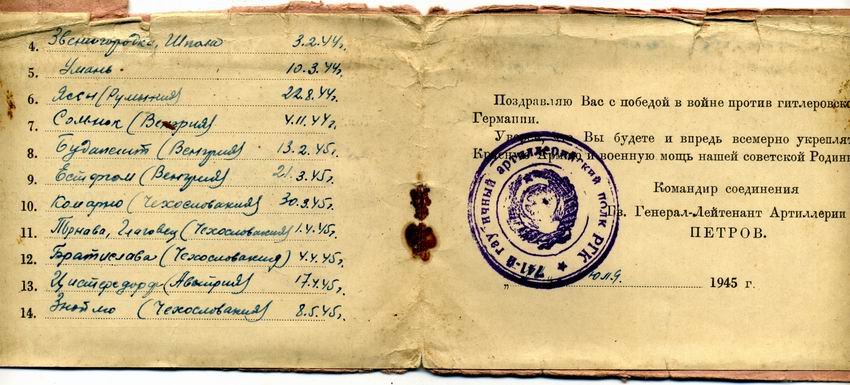 4. Звенигородка, Шпола 3.2.44г.
5. Умань 10.3.44г.
6. Яссы (Румыния) 22.8.44г.
7. Сольнок (Венгрия) 4.11.44г.
8. Будапешт (Венгрия) 13.2.45г.
9. Естергом (Венгрия) 21.3.45г.
10. Комарно (Чехословакия) 30.3.45г.
11. Трнава, Глоговец (Чехословакия) 1.4.45г.
12. Братислава (Чехословакия) 4.4.45г.
13. Цистердорф (Австрия) 17.4.45г.
14. Зноймо (Чехословакия) 8.5.45г.
Поздравляю Вас с победой в войне против гитлеровско
Германии.
что Вы будете и впредь всемерно укреплят
Красную Армию и военную мощь нашей советской Родин
Командир соединения
Гв. Генерал-Лейтенант Артиллерии
ПЕТРОВ.
1945 г.
741-й гаубичный артиллерийский полк РГК